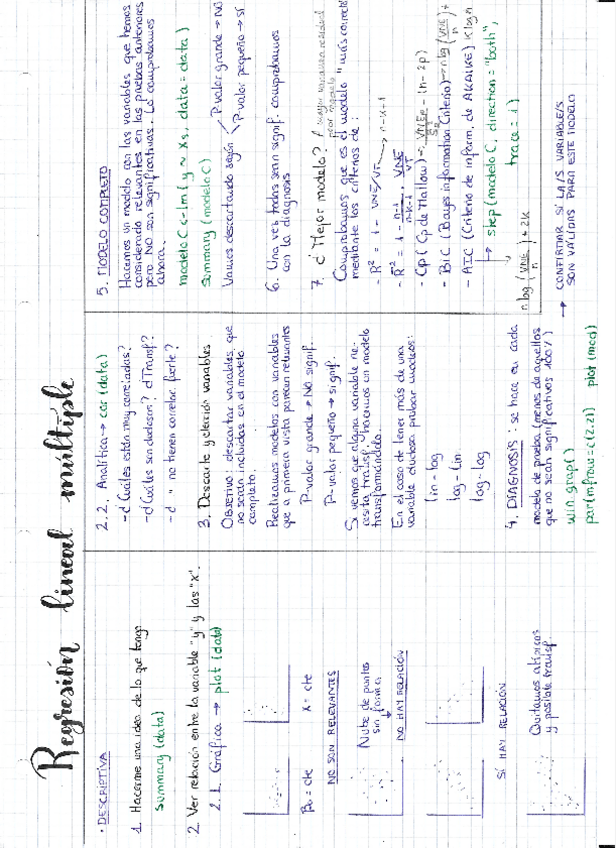 Regresión lineal múltiple
· DESCRIPTIVA
1. Hacerme una idea de lo que tengo
summary (data)
2. Ver relación entre la variable "y" y las "x".
2.1. Gráfica → plot (data)
β₀ = cte
X = cte
NO SON RELEVANTES
Nube de puntos
sin forma
NO HAY RELACIÓN
SÍ HAY RELACIÓN
Quitamos atípicos
y posible transf.
2.2. Analítica → cor (data)
-¿Cuáles están muy correladas?
-¿Cuáles son declason? ¿Transf?
-¿ " no tienen correlac. fuerte?
3. Descarte y elección variables
OBJETIVO: descartar variables que
no serán incluidas en el modelo
completo.
Realizamos modelos con variables
que a primera vista parecen relevantes
P-valor grande → NO signif.
P-valor pequeño → signif.
Si vemos que alguna variable ne-
cesita transf. hacemos un modelo
transformándola.
En el caso de tener más de una
variable dudosa probar modelos:
lin - log
log - lin
log - log
4. DIAGNOSIS: se hace en cada
modelo de prueba (menos de aquellos
que no sean significativos 100%)
win.graph()
par(mfrow=c(2,2)) plot (mod)
5. MODELO COMPLETO
Hacemos un modelo con las variables que hemos
considerado relevantes en las pruebas anteriores
pero NO son significativas. Lo comprobamos
ahora.
modelo C <- lm ( y ~ Xs, data = data )
summary (modelo C)
Vamos descartando según
P-valor grande → NO
P-valor pequeño → SÍ
6. Una vez todas sean signif. comprobamos
con la diagnosis
7. ¿Mejor modelo?
Comprobamos que es el modelo "más correcto"
mediante los criterios de:
- R² = 1 - VNE/VT
n-k-1
- R̄² = 1 - n-1/n-k-1 · VNE/VT
- Cp (Cp de Mallow) →
- BIC (Bayes information Criterio) → n log (VNE/n) +
k log n
- AIC (Criterio de inform. de AKAIKE)
n log (VNE/n) + 2k
step (modelo C, direction = "both",
trace = 1)
→ CONFIRMAR SI LA/S VARIABLE/S
SON VÁLIDAS PARA ESTE MODELO